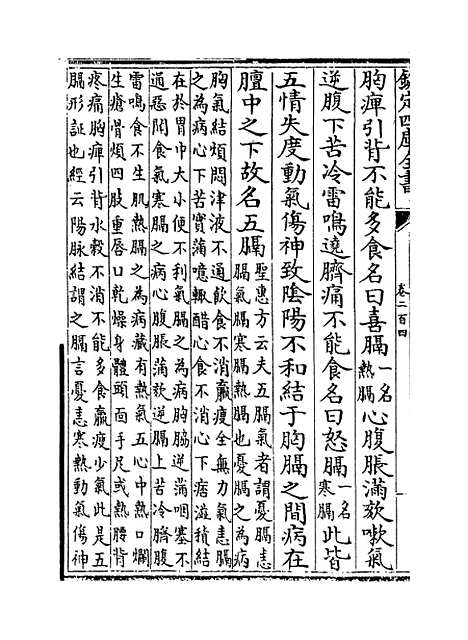 欽定四庫全書
卷二百四
胸痺引背不能多食名曰喜膈一名熱膈心腹脹滿欬嗽氣
逆腹下苦冷雷鳴遶臍痛不能食名曰怒膈一名寒膈此皆
五情失度動氣傷神致隂陽不和結于胸膈之間病在
膻中之下故名五膈聖惠方云夫五膈氣者謂憂膈恚
膈氣膈寒膈熱膈也憂膈之為病
胸氣結煩悶津液不通飲食不消羸瘦全無力氣恚膈
之為病心下苦實滿噫輒醋心食不消心下痞澁積結
在於胃中大小便不利氣膈之為病胸脇逆滿咽塞不
通惡聞食氣寒膈之病心腹脹滿欬逆膈上苦冷臍腹
雷鳴食不生肌熱膈之為病藏有熱氣五心中熱口爛
生瘡骨煩四肢重唇口乾燥身體頭面手足或熱腰背
疼痛胸痺引背水穀不消不能多食羸瘦少氣此是五
膈形証也經云陽脉結謂之膈言憂恚寒熱動氣傷神